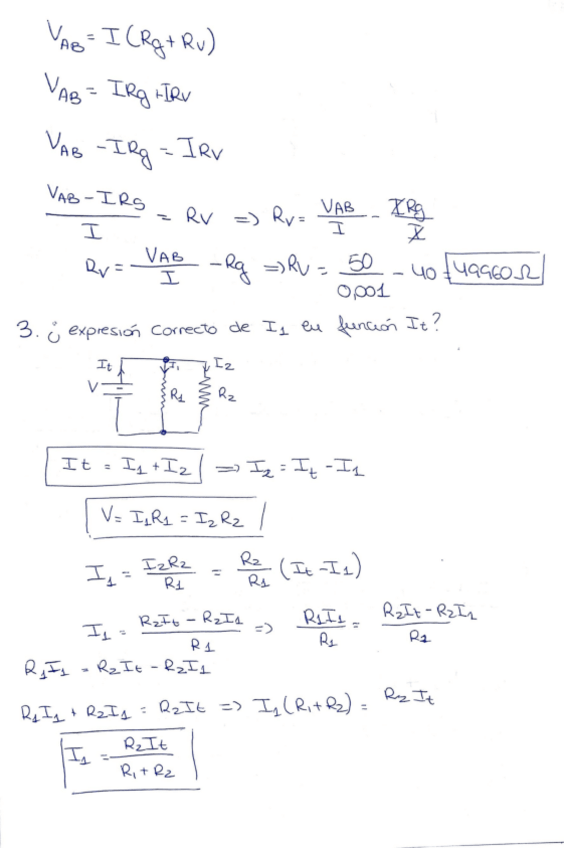 V_AB = I (Rg + Rv)
V_AB = IRg + IRv
V_AB - IRg = IRv
(V_AB - IRg)/I = Rv => Rv = V_AB/I - IRg/I
Rv = V_AB/I - Rg => Rv = 50/0,001 - 40 = 49960 Ω
3. ¿ expresión correcto de I1 en función It?
It I1 I2
V R1 R2
It = I1 + I2 => I2 = It - I1
V = I1R1 = I2R2
I1 = I2R2/R1 = R2/R1 (It - I1)
I1 = (R2It - R2I1)/R1 => R1I1/R1 = (R2It - R2I1)/R1
R1I1 = R2It - R2I1
R1I1 + R2I1 = R2It => I1(R1+R2) = R2It
I1 = R2It/(R1 + R2)